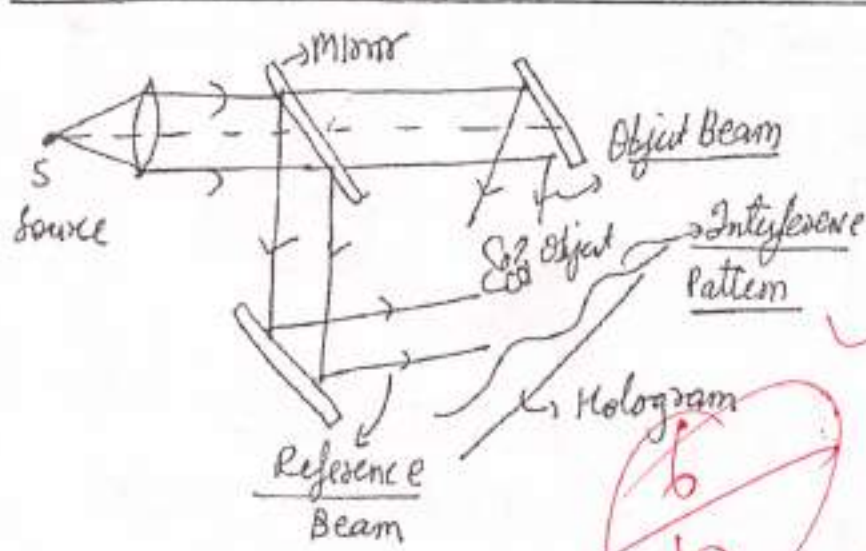 Mirror
Object Beam
S
Source
Object
Interference
Pattern
Hologram
Reference
Beam
6